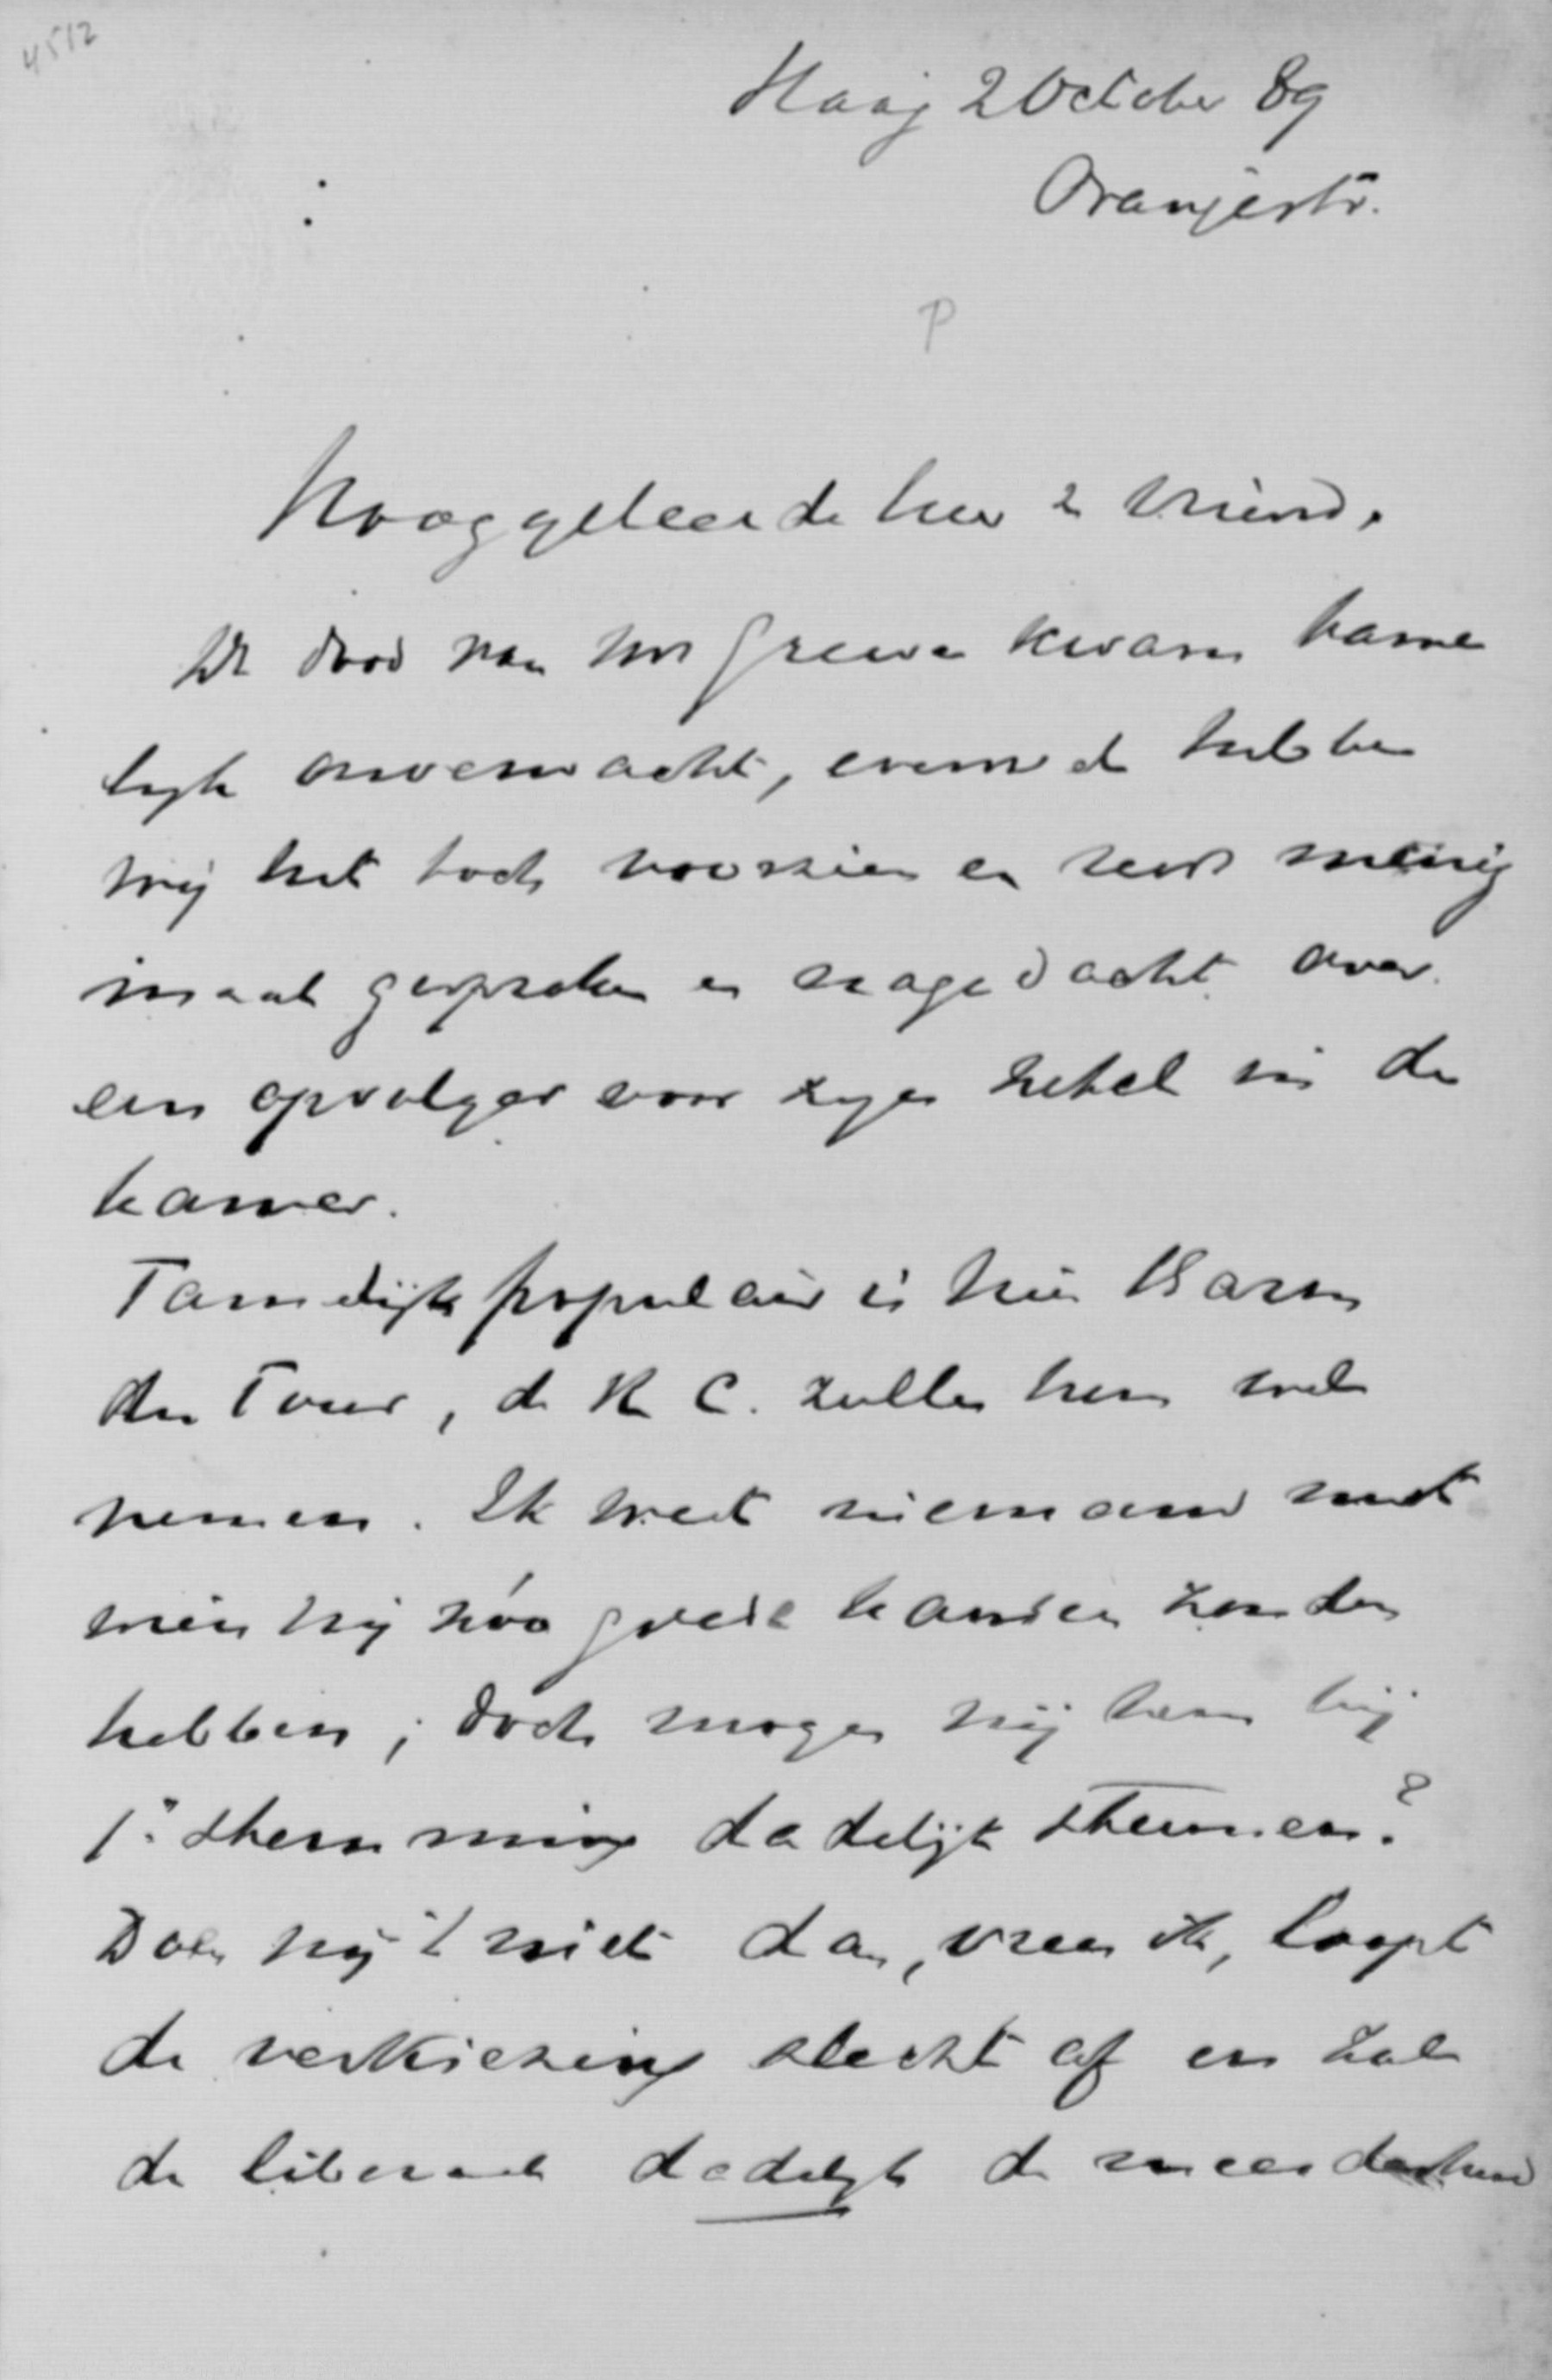 4512
Haag 2 October 89
Oranjestr.
P
Hooggeleerde heer & vriend,
De dood van mr Greeve kwam kame
lyk onverwacht, evenwel hebben
wij het toch voorzien en reeds menig
maal gesproken en nagedacht over
een opvolger voor zyn zetel in de
kamer.
Tamelijk populair is hier Baron
du Tour, de R C. zullen hem wel
nemen. Ik weet niemand met
wien wij zóó goede kansen zouden
hebben; doch mogen wij hem bij
1e stemming dadelijk stemmen?
Doen wij 't niet dan, vrees ik, loopt
de verkiezing slecht af en zal
de liberaal dadelyk de meerderheid